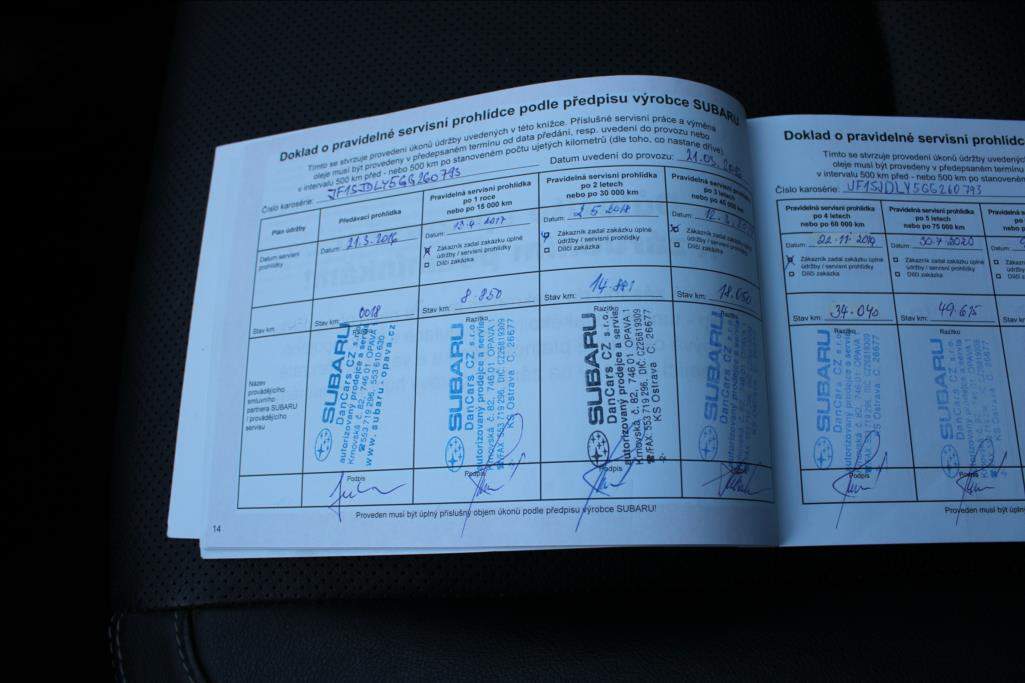 Doklad o pravidelné servisní prohlídce podle předpisu výrobce SUBARU
Tímto se stvrzuje provedení úkonů údržby uvedených v této knížce. Příslušné servisní práce a výměna
oleje musí být provedeny v předepsaném termínu od data předání, resp. uvedení do provozu nebo
v intervalu 500 km před - nebo 500 km po stanoveném počtu ujetých kilometrů (dle toho, co nastane dříve)
Číslo karosérie: JF1SJDLY5GG260793
Datum uvedení do provozu: 21.03.
Plán údržby
Předávací prohlídka
Pravidelná servisní prohlídka
po 1 roce
nebo po 15 000 km
Pravidelná servisní prohlídka
po 2 letech
nebo po 30 000 km
Pravidelná servisní prohlídka
po 3 letech
nebo po 45 000 km
Datum servisní
prohlídky
Datum: 21.3.2016
Datum: 13.4.2017
Zákazník zadal zakázku úplné
údržby / servisní prohlídky
Dílčí zakázka
Datum: 2.5.2018
Zákazník zadal zakázku úplné
údržby / servisní prohlídky
Dílčí zakázka
Datum: 12.3.
Zákazník zadal zakázku úplné
údržby / servisní prohlídky
Dílčí zakázka
Stav km:
Stav km: 0018
Stav km: 8.950
Stav km: 14.881
Stav km:
Název
provádějícího
smluvního
partnera SUBARU
/ provádějícího
servisu
Razítko
SUBARU
DanCars CZ s.r.o.
autorizovaný prodejce a servis
Krnovská č. 82, 746 01 OPAVA
553 719 296, 553 610 630
www.subaru-opava.cz
Razítko
SUBARU
DanCars CZ s.r.o.
autorizovaný prodejce a servis
Krnovská č. 82, 746 01 OPAVA 1
☎/FAX: 553 719 296, DIČ: CZ26819309
KS Ostrava C, 26677
Razítko
SUBARU
DanCars CZ s.r.o.
autorizovaný prodejce a servis
Krnovská č. 82, 746 01 OPAVA 1
☎/FAX: 553 719 296, DIČ: CZ26819309
KS Ostrava C, 26677
Razítko
SUBARU
DanCars CZ s.r.o.
autorizovaný prodejce a servis
Krnovská č. 82, 746 01 OPAVA 1
☎/FAX: 553 719 296, DIČ: CZ26819309
KS Ostrava C, 26677
Podpis
Podpis
Podpis
Podpis
Proveden musí být úplný příslušný objem úkonů podle předpisu výrobce SUBARU!
14
Doklad o pravidelné servisní prohlídce
Tímto se stvrzuje provedení úkonů údržby uvedených
oleje musí být provedeny v předepsaném
v intervalu 500 km před - nebo 500 km po stanoveném
Číslo karosérie: JF1SJDLY5GG260793
Pravidelná servisní prohlídka
po 4 letech
nebo po 60 000 km
Pravidelná servisní prohlídka
po 5 letech
nebo po 75 000 km
Datum: 22.11.2019
Zákazník zadal zakázku úplné
údržby / servisní prohlídky
Dílčí zakázka
Datum: 30.7.2020
Zákazník zadal zakázku úplné
údržby / servisní prohlídky
Dílčí zakázka
Stav km: 34.040
Stav km: 49.615
Razítko
SUBARU
DanCars CZ s.r.o.
autorizovaný prodejce a servis
Razítko
SUBARU
DanCars CZ s.r.o.
Podpis
Podpis
Proveden musí být úplný